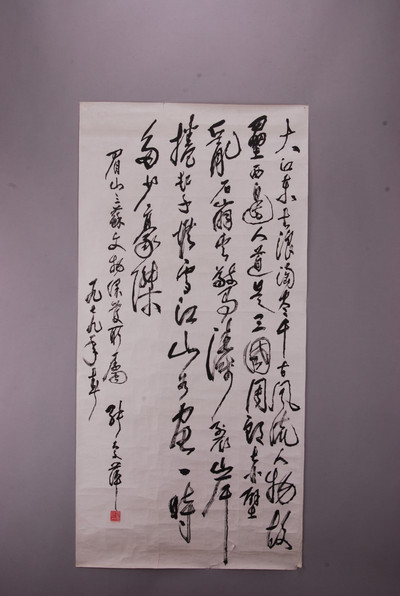 大江東去浪淘尽千古風流人物故
壘西邊人道是三國周郎赤壁
亂石崩云驚濤裂岸
捲起千堆雪江山如画一時
多少豪傑
眉山三蘇文物保管所屬
一九七九年春
张爱萍